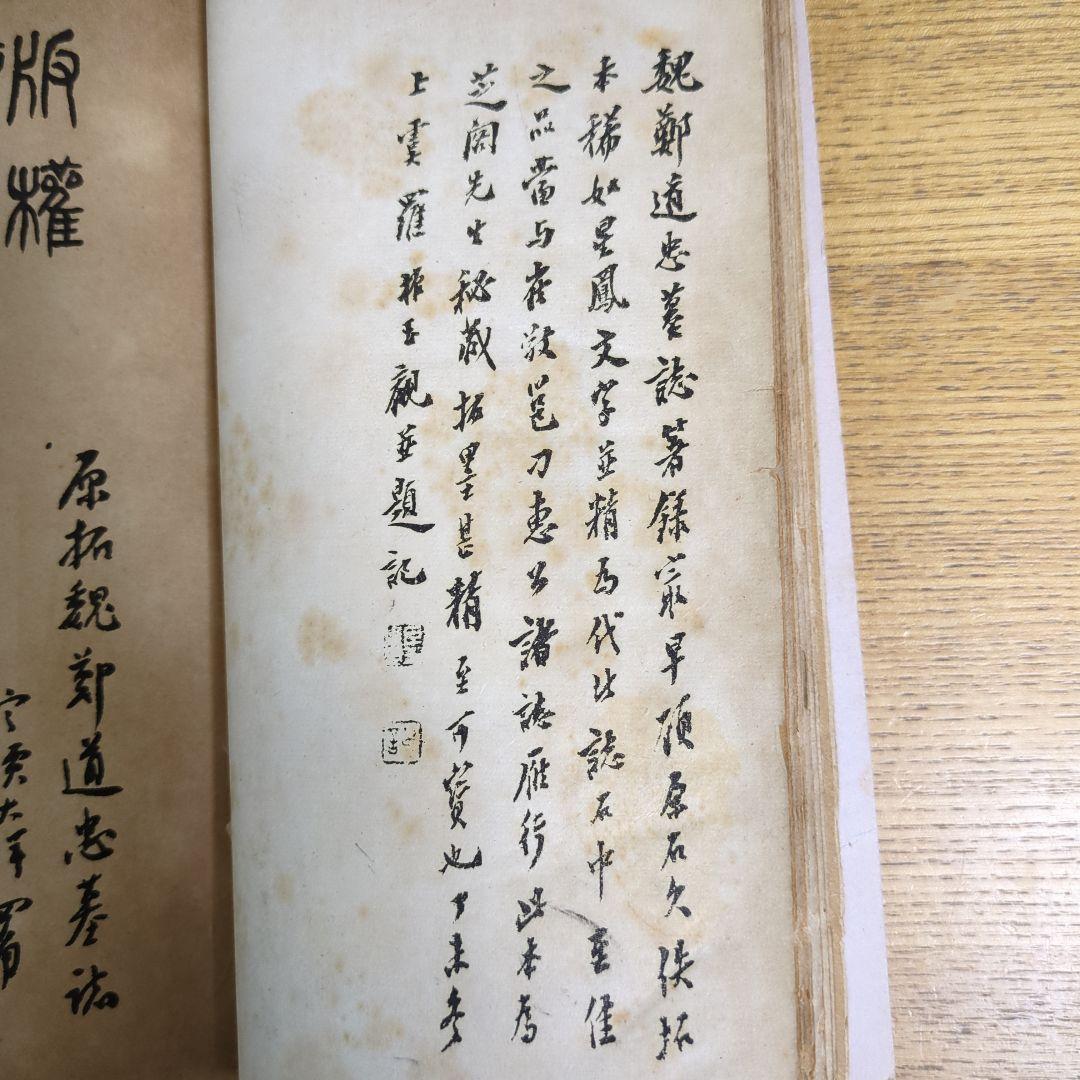 魏鄭道忠墓誌著錄㝡早顧原石久佚拓
本稀如星鳳文字並精為代北誌石中至佳
之品當与崔敬邕刁惠公諸誌雁行此本為
芝閣先生秘藏拓墨甚精至可寶也丁未冬
上虞羅振玉觀並題記
原拓魏鄭道忠墓誌
版權